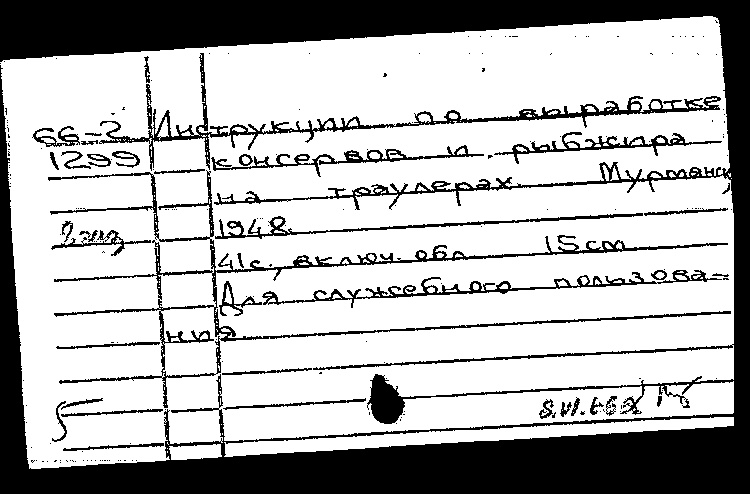 66-2 Инструкции по выработке
1299 консервов и рыбжира
на траулерах. Мурманск,
2 экз 1948.
41с., включ. обл 15см
Для служебного пользова-
ния